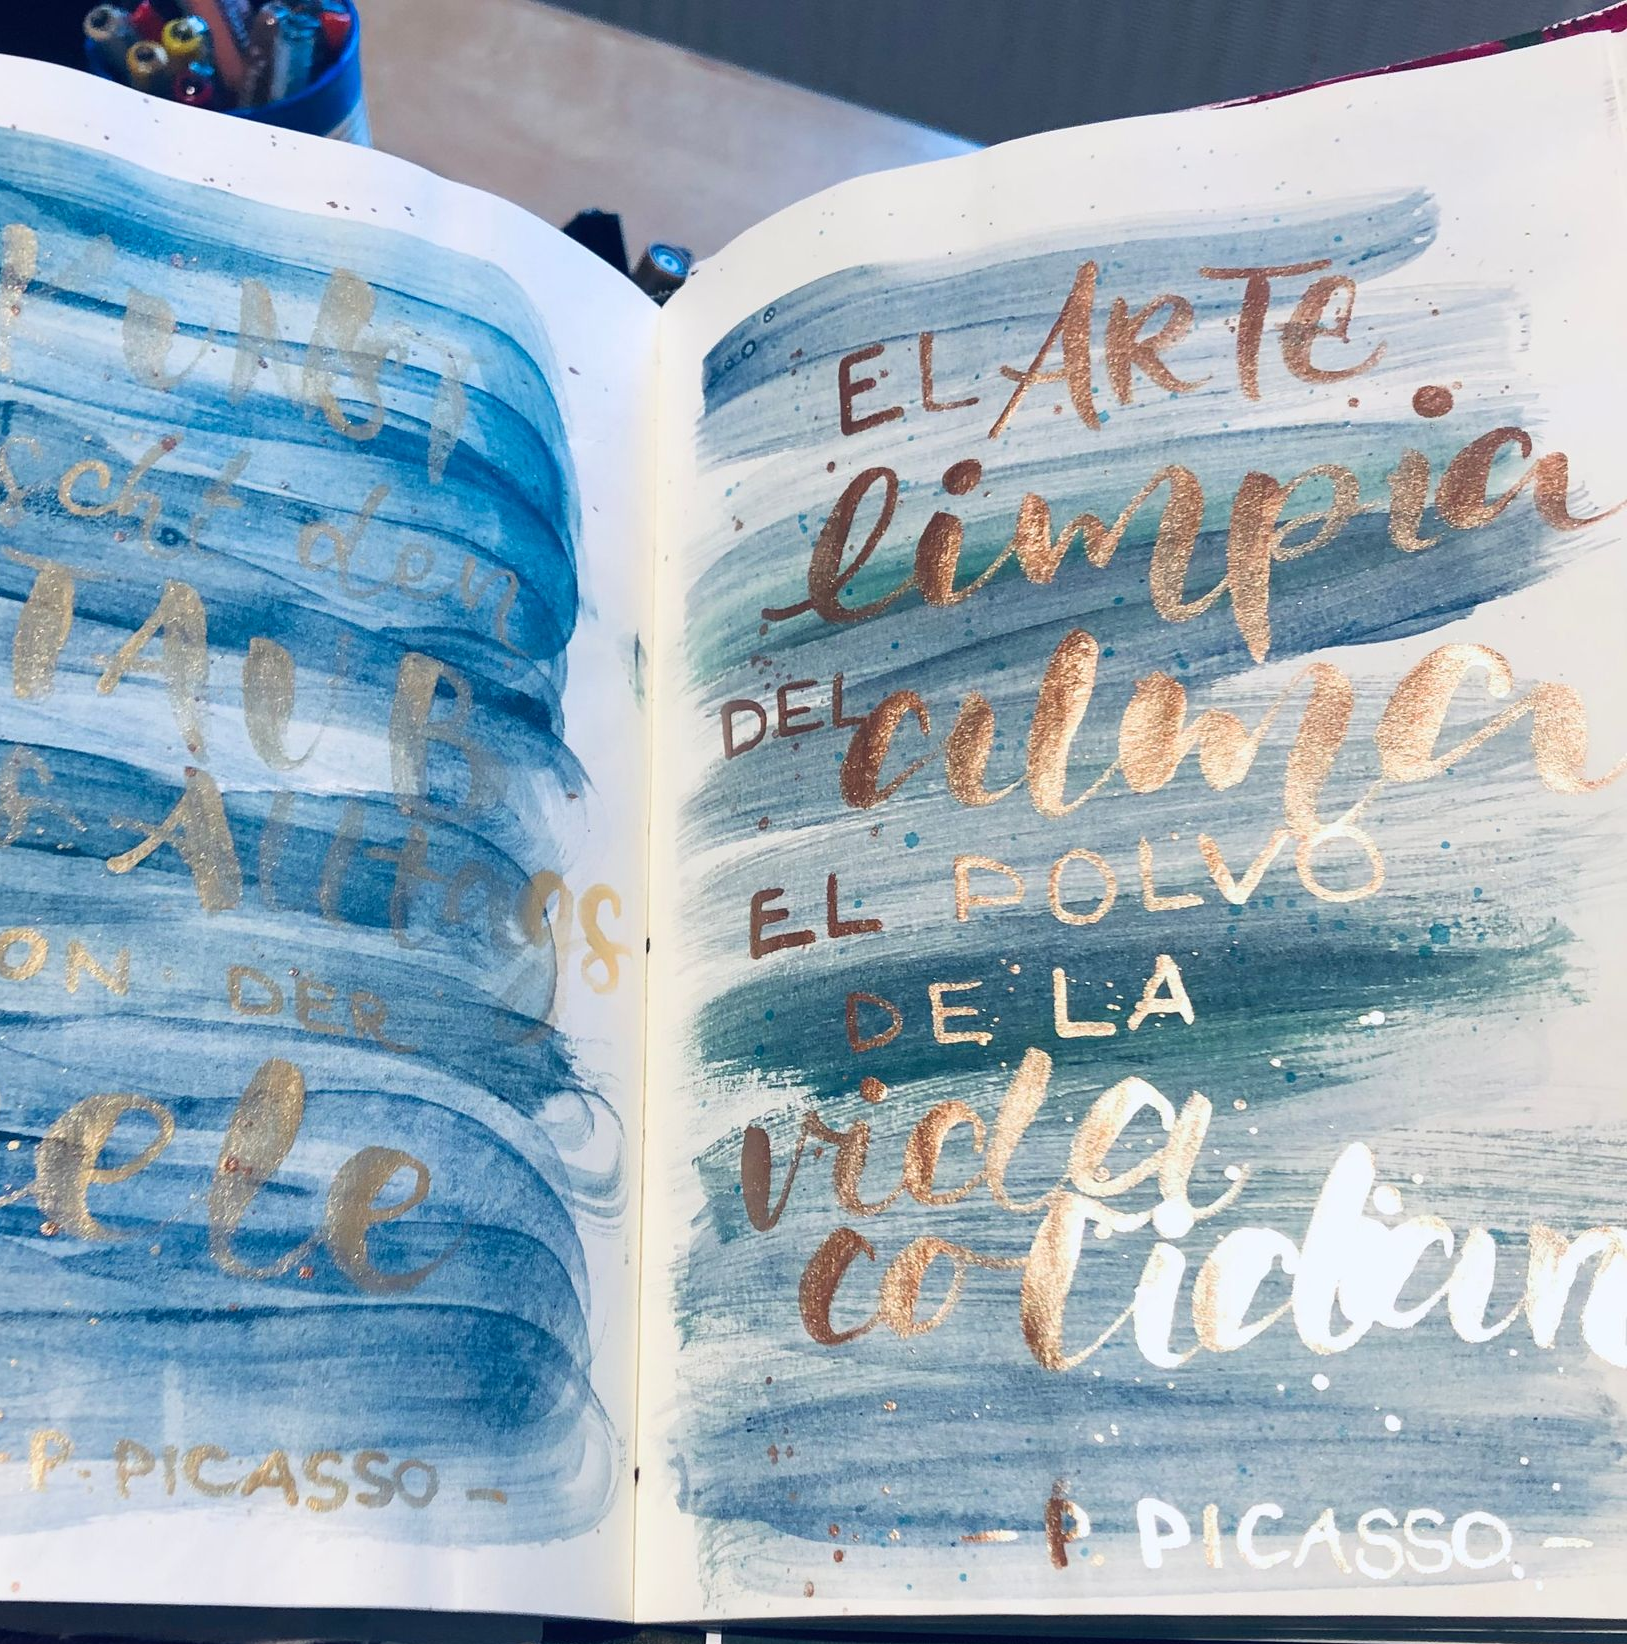 KUNST
scht den
TAUB
s Alltags
ON DER
eele
- P. PICASSO -
EL ARTE
limpia
DEL alma
EL POLVO
DE LA
vida
cotidian
- P. PICASSO. -